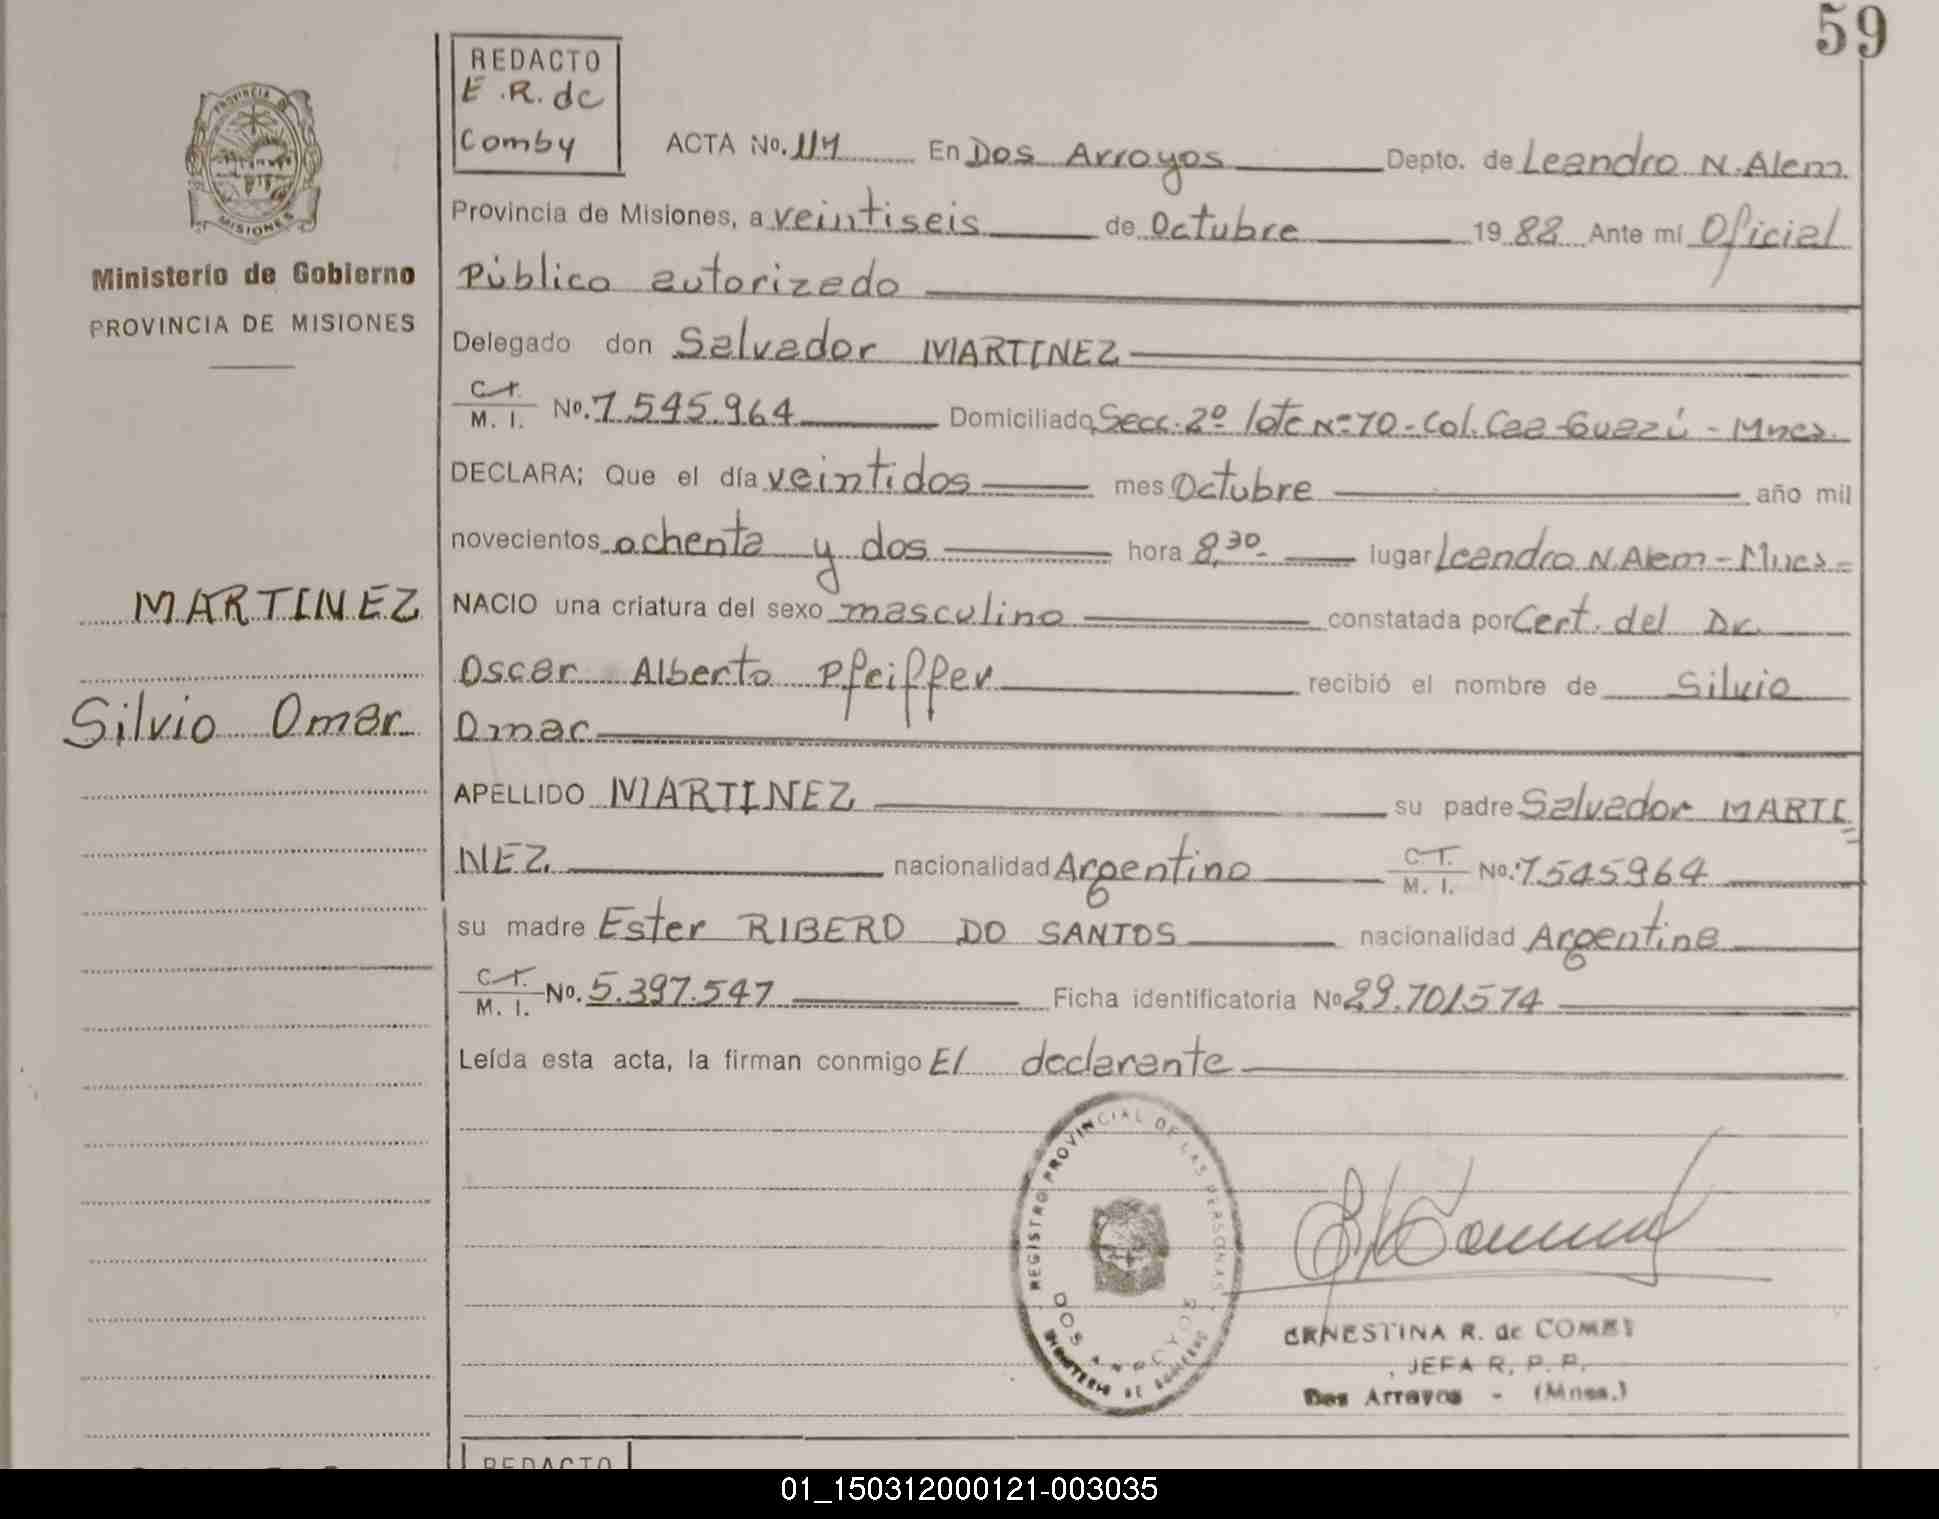 59
REDACTO
E.R. de
Comby
ACTA No. 114 En Dos Arroyos Depto. de Leandro N. Alem.
Provincia de Misiones, a veintiseis de Octubre 1988 Ante mí Oficial
Público autorizado
Delegado don Salvador MARTINEZ
C.I.
M. I. No. 7.545.964 Domiciliado Secc. 2º lote Nº 70 - Col. Caa-Guazú - Mnes.
DECLARA; Que el día veintidos mes Octubre año mil
novecientos ochenta y dos hora 8,30- lugar Leandro N. Alem - Mnes -
NACIO una criatura del sexo masculino constatada por Cert. del Dr.
Oscar Alberto Pfeiffer recibió el nombre de Silvio
Omar
APELLIDO MARTINEZ su padre Salvador MARTI=
NEZ nacionalidad Argentino C.I.
M. I. No. 7545964
su madre Ester RIBERO DO SANTOS nacionalidad Argentina
C.I.
M. I. No. 5.397.547 Ficha identificatoria No 29.701574
Leída esta acta, la firman conmigo El declarante
PROVINCIA DE
MISIONES
Ministerio de Gobierno
PROVINCIA DE MISIONES
MARTINEZ
Silvio Omar
REGISTRO PROVINCIAL DE LAS PERSONAS
DOS ARROYOS
MINISTERIO DE GOBIERNO
ERNESTINA R. de COMBY
JEFA R. P. P.
Dos Arroyos - (Mnes.)
REDACTO
01_150312000121-003035